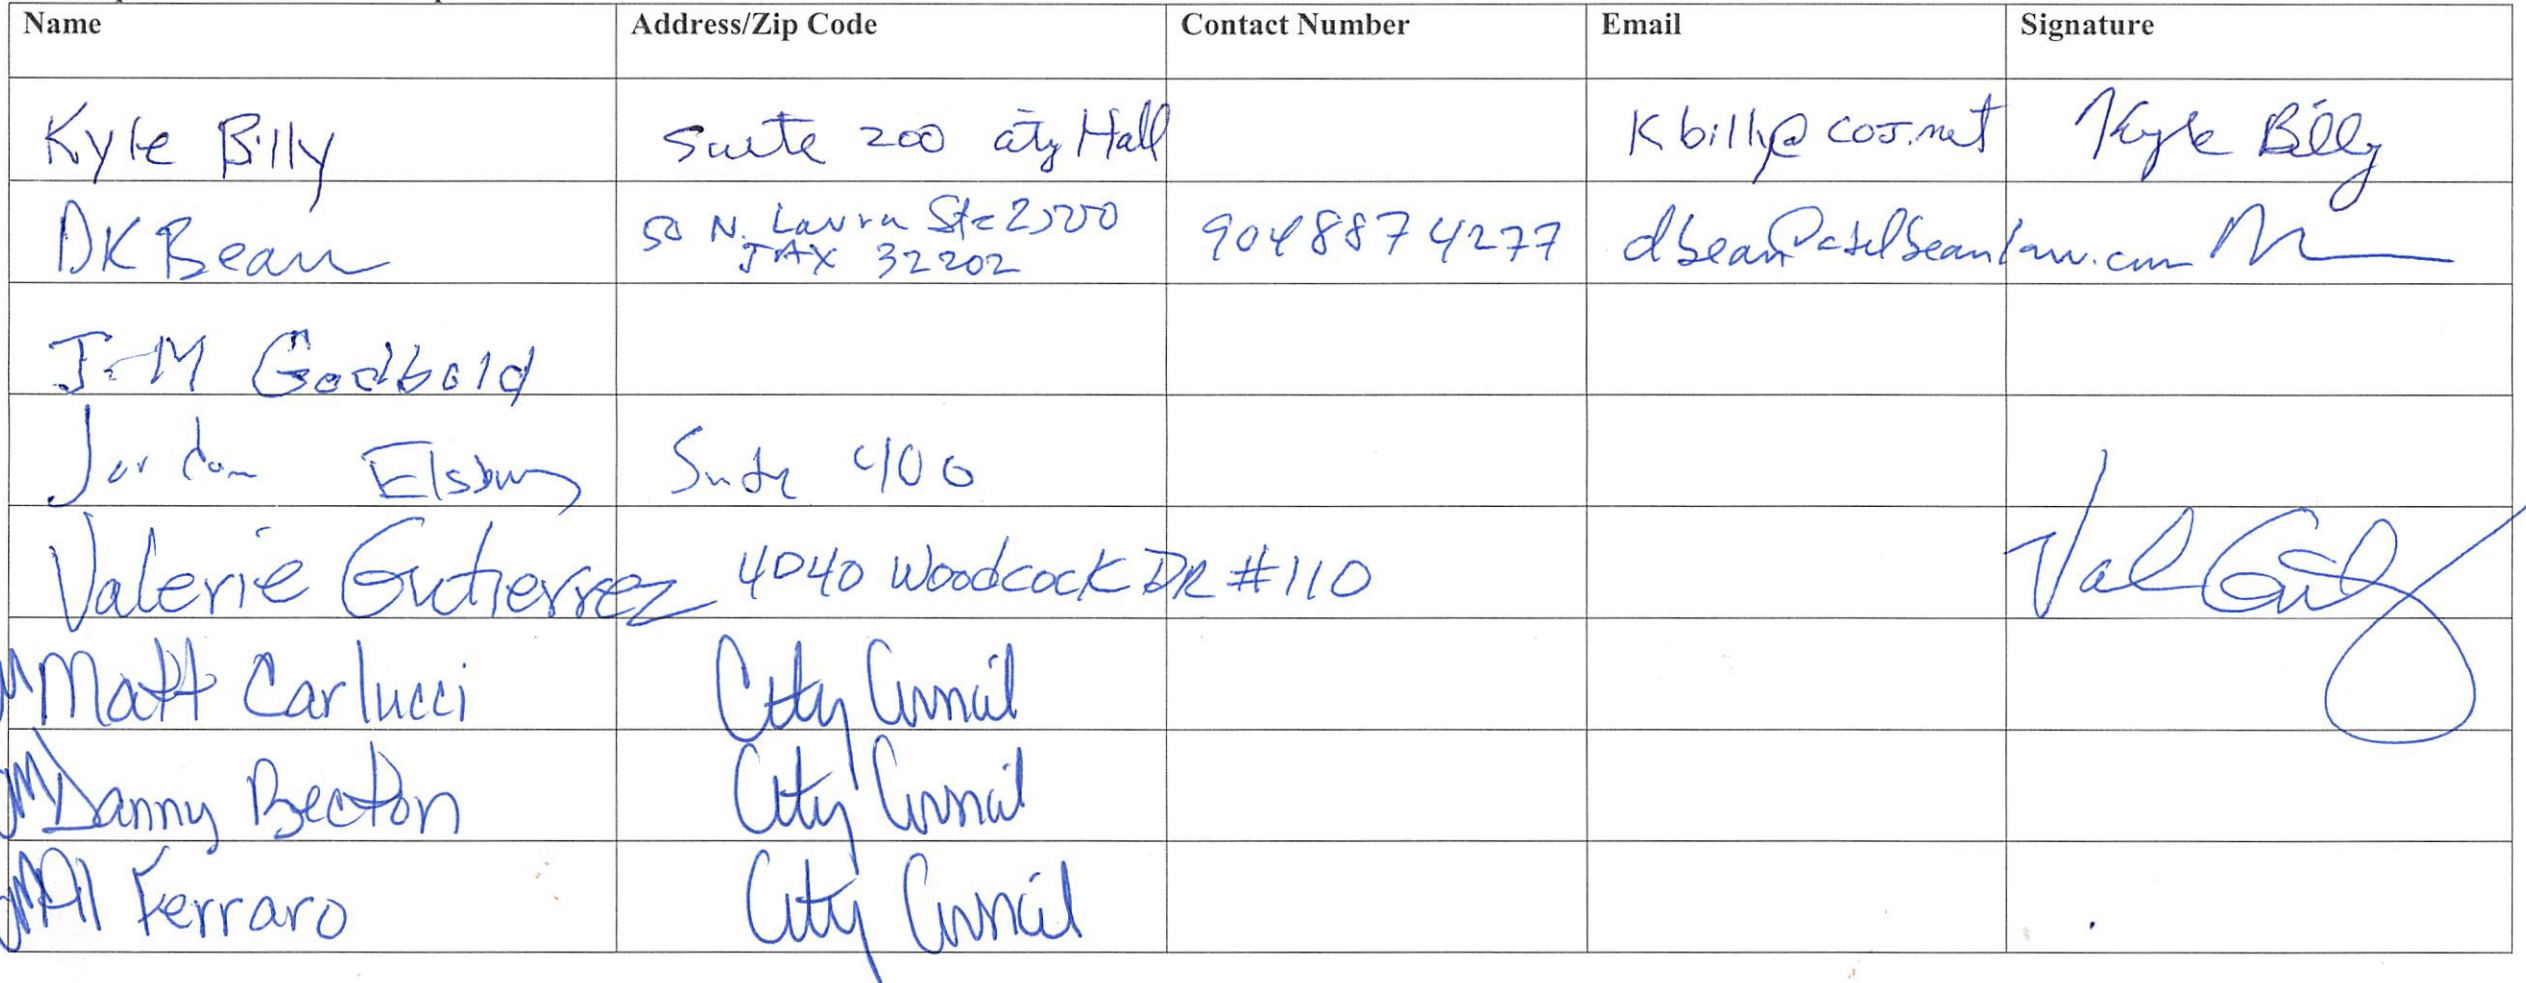 Name Address/Zip Code Contact Number Email Signature
Kyle Billy Suite 200 City Hall Kbilly@coj.net Kyle Billy
DK Bean 50 N. Laura Ste 2500 9048874277
JAX 32202
Godbold
Jordan Elsbury Suite 400
Valerie Gutierrez 4040 Woodcock DR #110 Val
Matt Carlucci City Council
Danny Becton City Council
Al Ferraro City Council